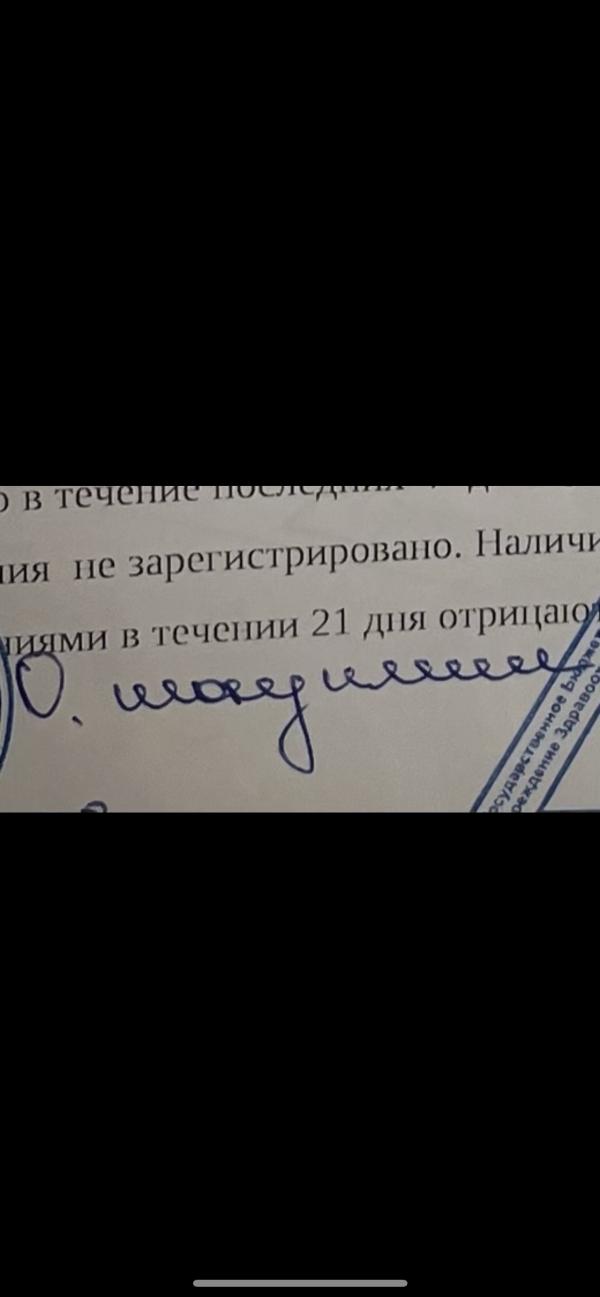 в течение последних
не зарегистрировано. Наличи
ниями в течении 21 дня отрицаю
О.
осударственное Бюджет
реждение Здравоох